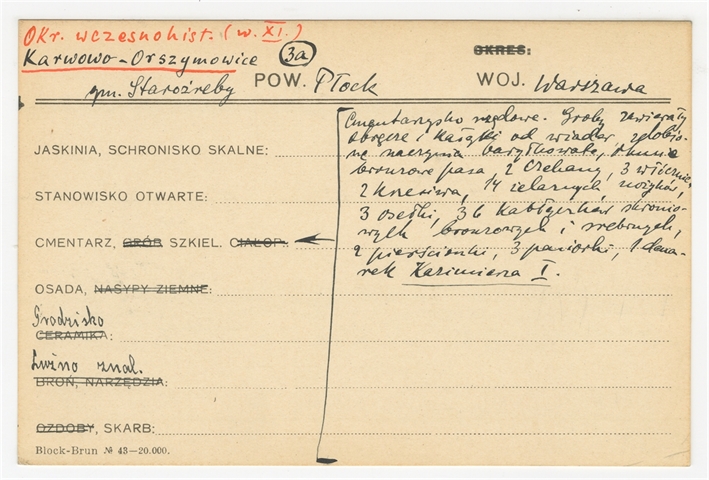 Okr. wczesnohist. (w. XI.)
Karwowo-Orszymowice
3a
OKRES:
gm. Staroźreby
POW. Płock
WOJ. Warszawa
JASKINIA, SCHRONISKO SKALNE:
STANOWISKO OTWARTE:
CMENTARZ, GRÓB SZKIEL. CIAŁOP.:
OSADA, NASYPY ZIEMNE:
Grodzisko
CERAMIKA:
Luźno znal.
BROŃ, NARZĘDZIA:
OZDOBY, SKARB:
Block-Brun № 43—20.000.
Cmentarzysko rzędowe. Groby zawierały
obręcze i kabłąki od wiader, zdobio-
ne naczynia baryłkowate, okucie
bronzowe pasa, 2 czekany, 3 włócznie,
2 krzesiwa, 14 żelaznych nożyków,
3 osełki, 36 kabłączków skronio-
wych bronzowych i srebrnych,
2 pierścionki, 3 paciorki, 1 dena-
rek Kazimierza I.